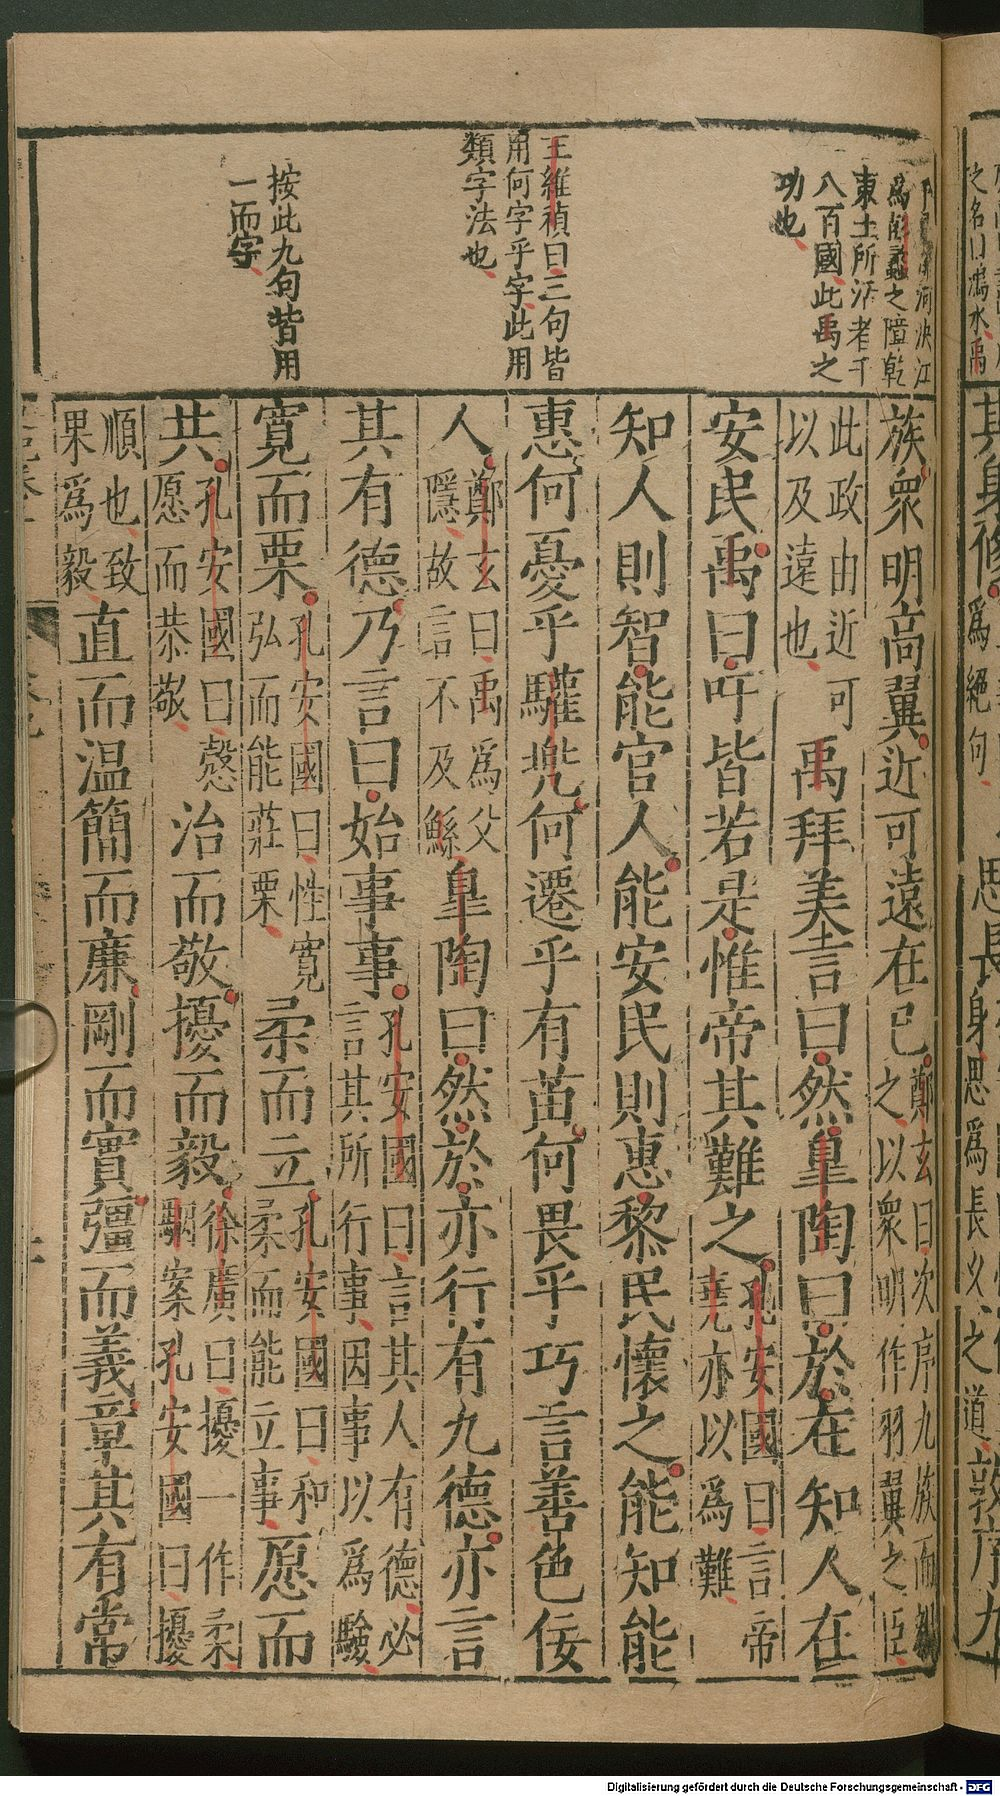 為彭蠡之障乾
東土所活者千
八百國此禹之
功也
王維禎曰三句皆
用何字乎字此用
類字法也
按此九句皆用
一而字
族衆明高翼近可遠在已鄭玄曰次序九族而親
之以衆明作羽翼之臣
此政由近可
以及遠也禹拜美言曰然皐陶曰於在知人在
安民禹曰吁皆若是惟帝其難之孔安國曰言帝
堯亦以為難
知人則智能官人能安民則惠黎民懷之能知能
惠何憂乎驩兠何遷乎有苗何畏乎巧言善色佞
人鄭玄曰禹為父
隱故言不及鯀皐陶曰然於亦行有九德亦言
其有德乃言曰始事事孔安國曰言其人有德必
言其所行事因事以為驗
寬而栗孔安國曰性寬
弘而能莊栗柔而立孔安國曰和
柔而能立事愿而
共孔安國曰愨
愿而恭敬治而敬擾而毅徐廣曰擾一作柔
駰案孔安國曰擾
順也致
果為毅直而温簡而廉剛而實彊而義章其有常
其身修
為絕句
思長
身思為長久之道
敦序九
之名曰鴻水禹
Digitalisierung gefördert durch die Deutsche Forschungsgemeinschaft - DFG